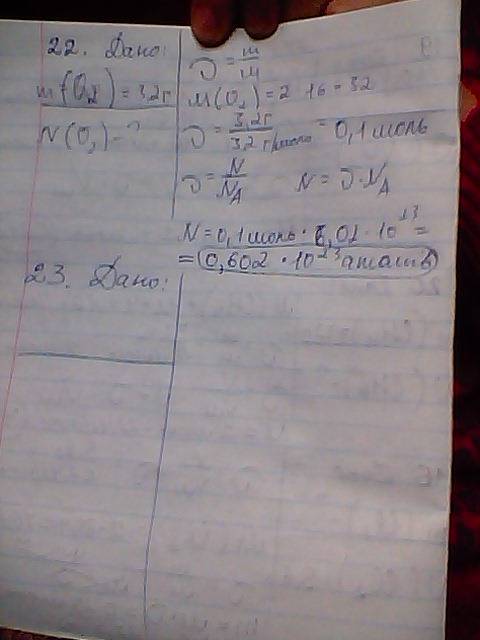 22. Дано:
m(O₂) = 3,2г
N(O₂) - ?
ν = m/M
M(O₂) = 2 · 16 = 32
ν = 3,2г / 3,2 г/моль = 0,1 моль
ν = N/N_A N = ν · N_A
N = 0,1 моль · 6,02 · 10²³ =
= 0,602 · 10²³ атомів
23. Дано: